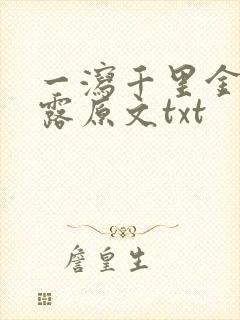 一瀉千里金
露原文txt
詹皇生